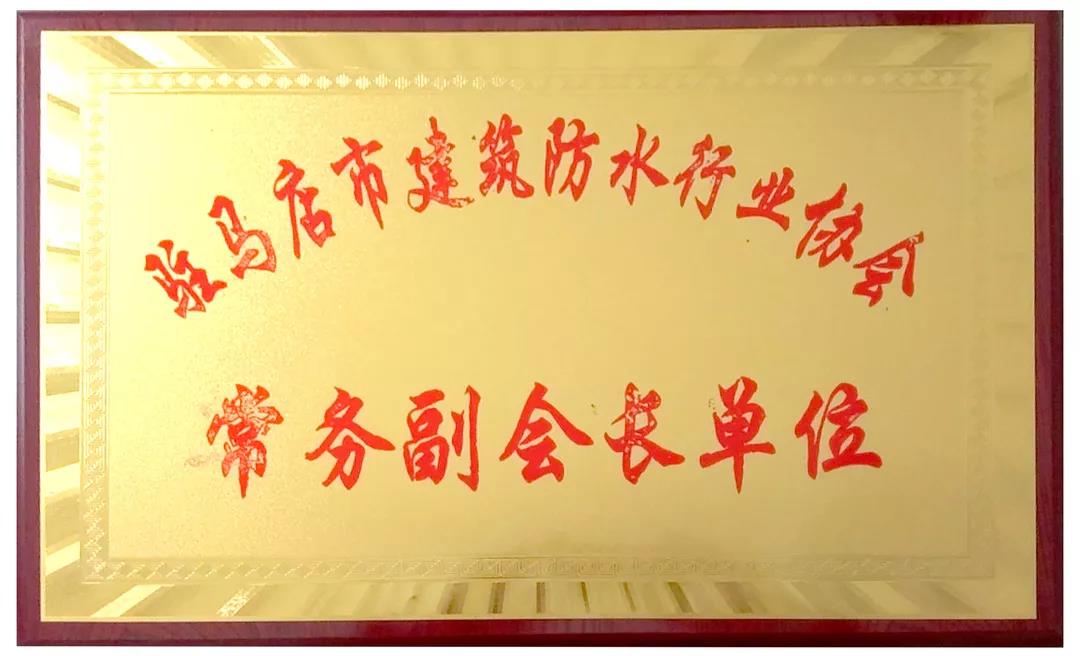 驻马店市建筑防水行业协会
常务副会长单位